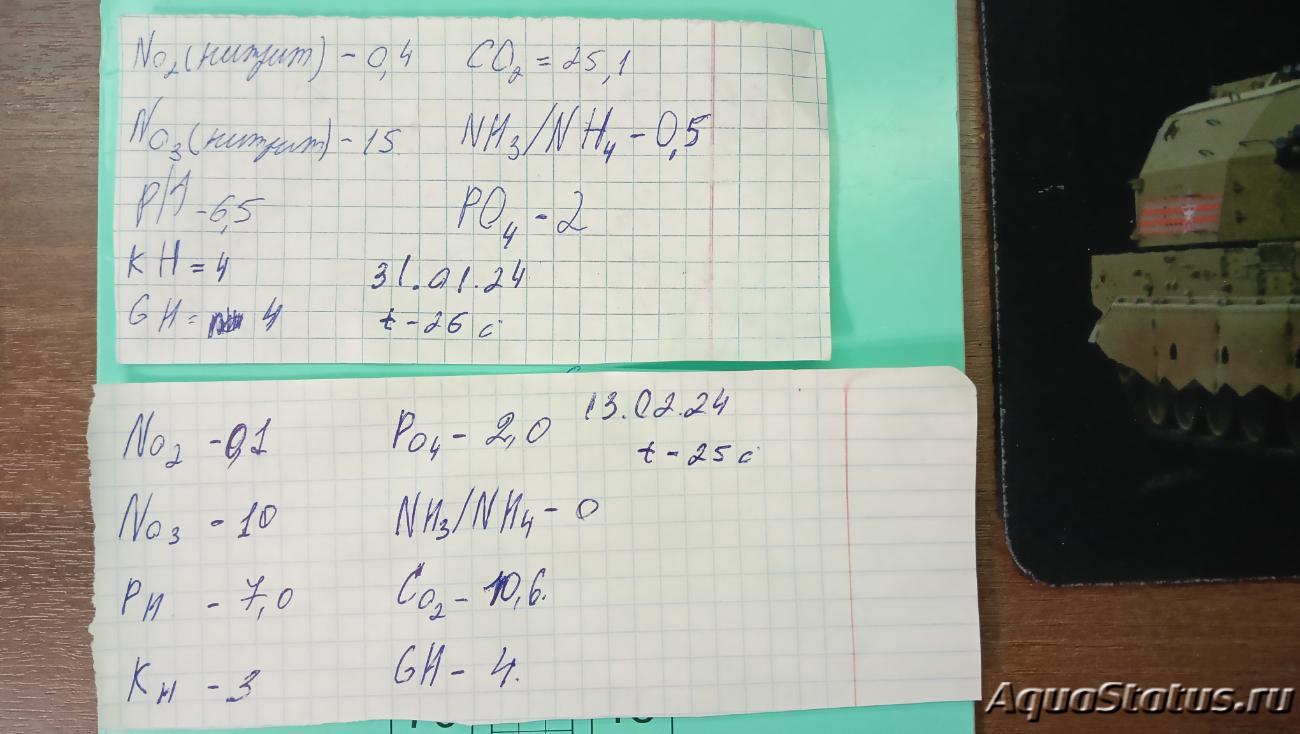 NO2 (нитрит) - 0,4 CO2 = 25,1
NO3 (нитрит) - 15 NH3/NH4 - 0,5
PH - 6,5 PO4 - 2
KH = 4 31.01.24
GH = 4 t - 26 c
NO2 - 0,1 PO4 - 2,0 13.02.24
t - 25 c
NO3 - 10 NH3/NH4 - 0
PH - 7,0 CO2 - 10,6.
KH - 3 GH - 4.
AquaStatus.ru